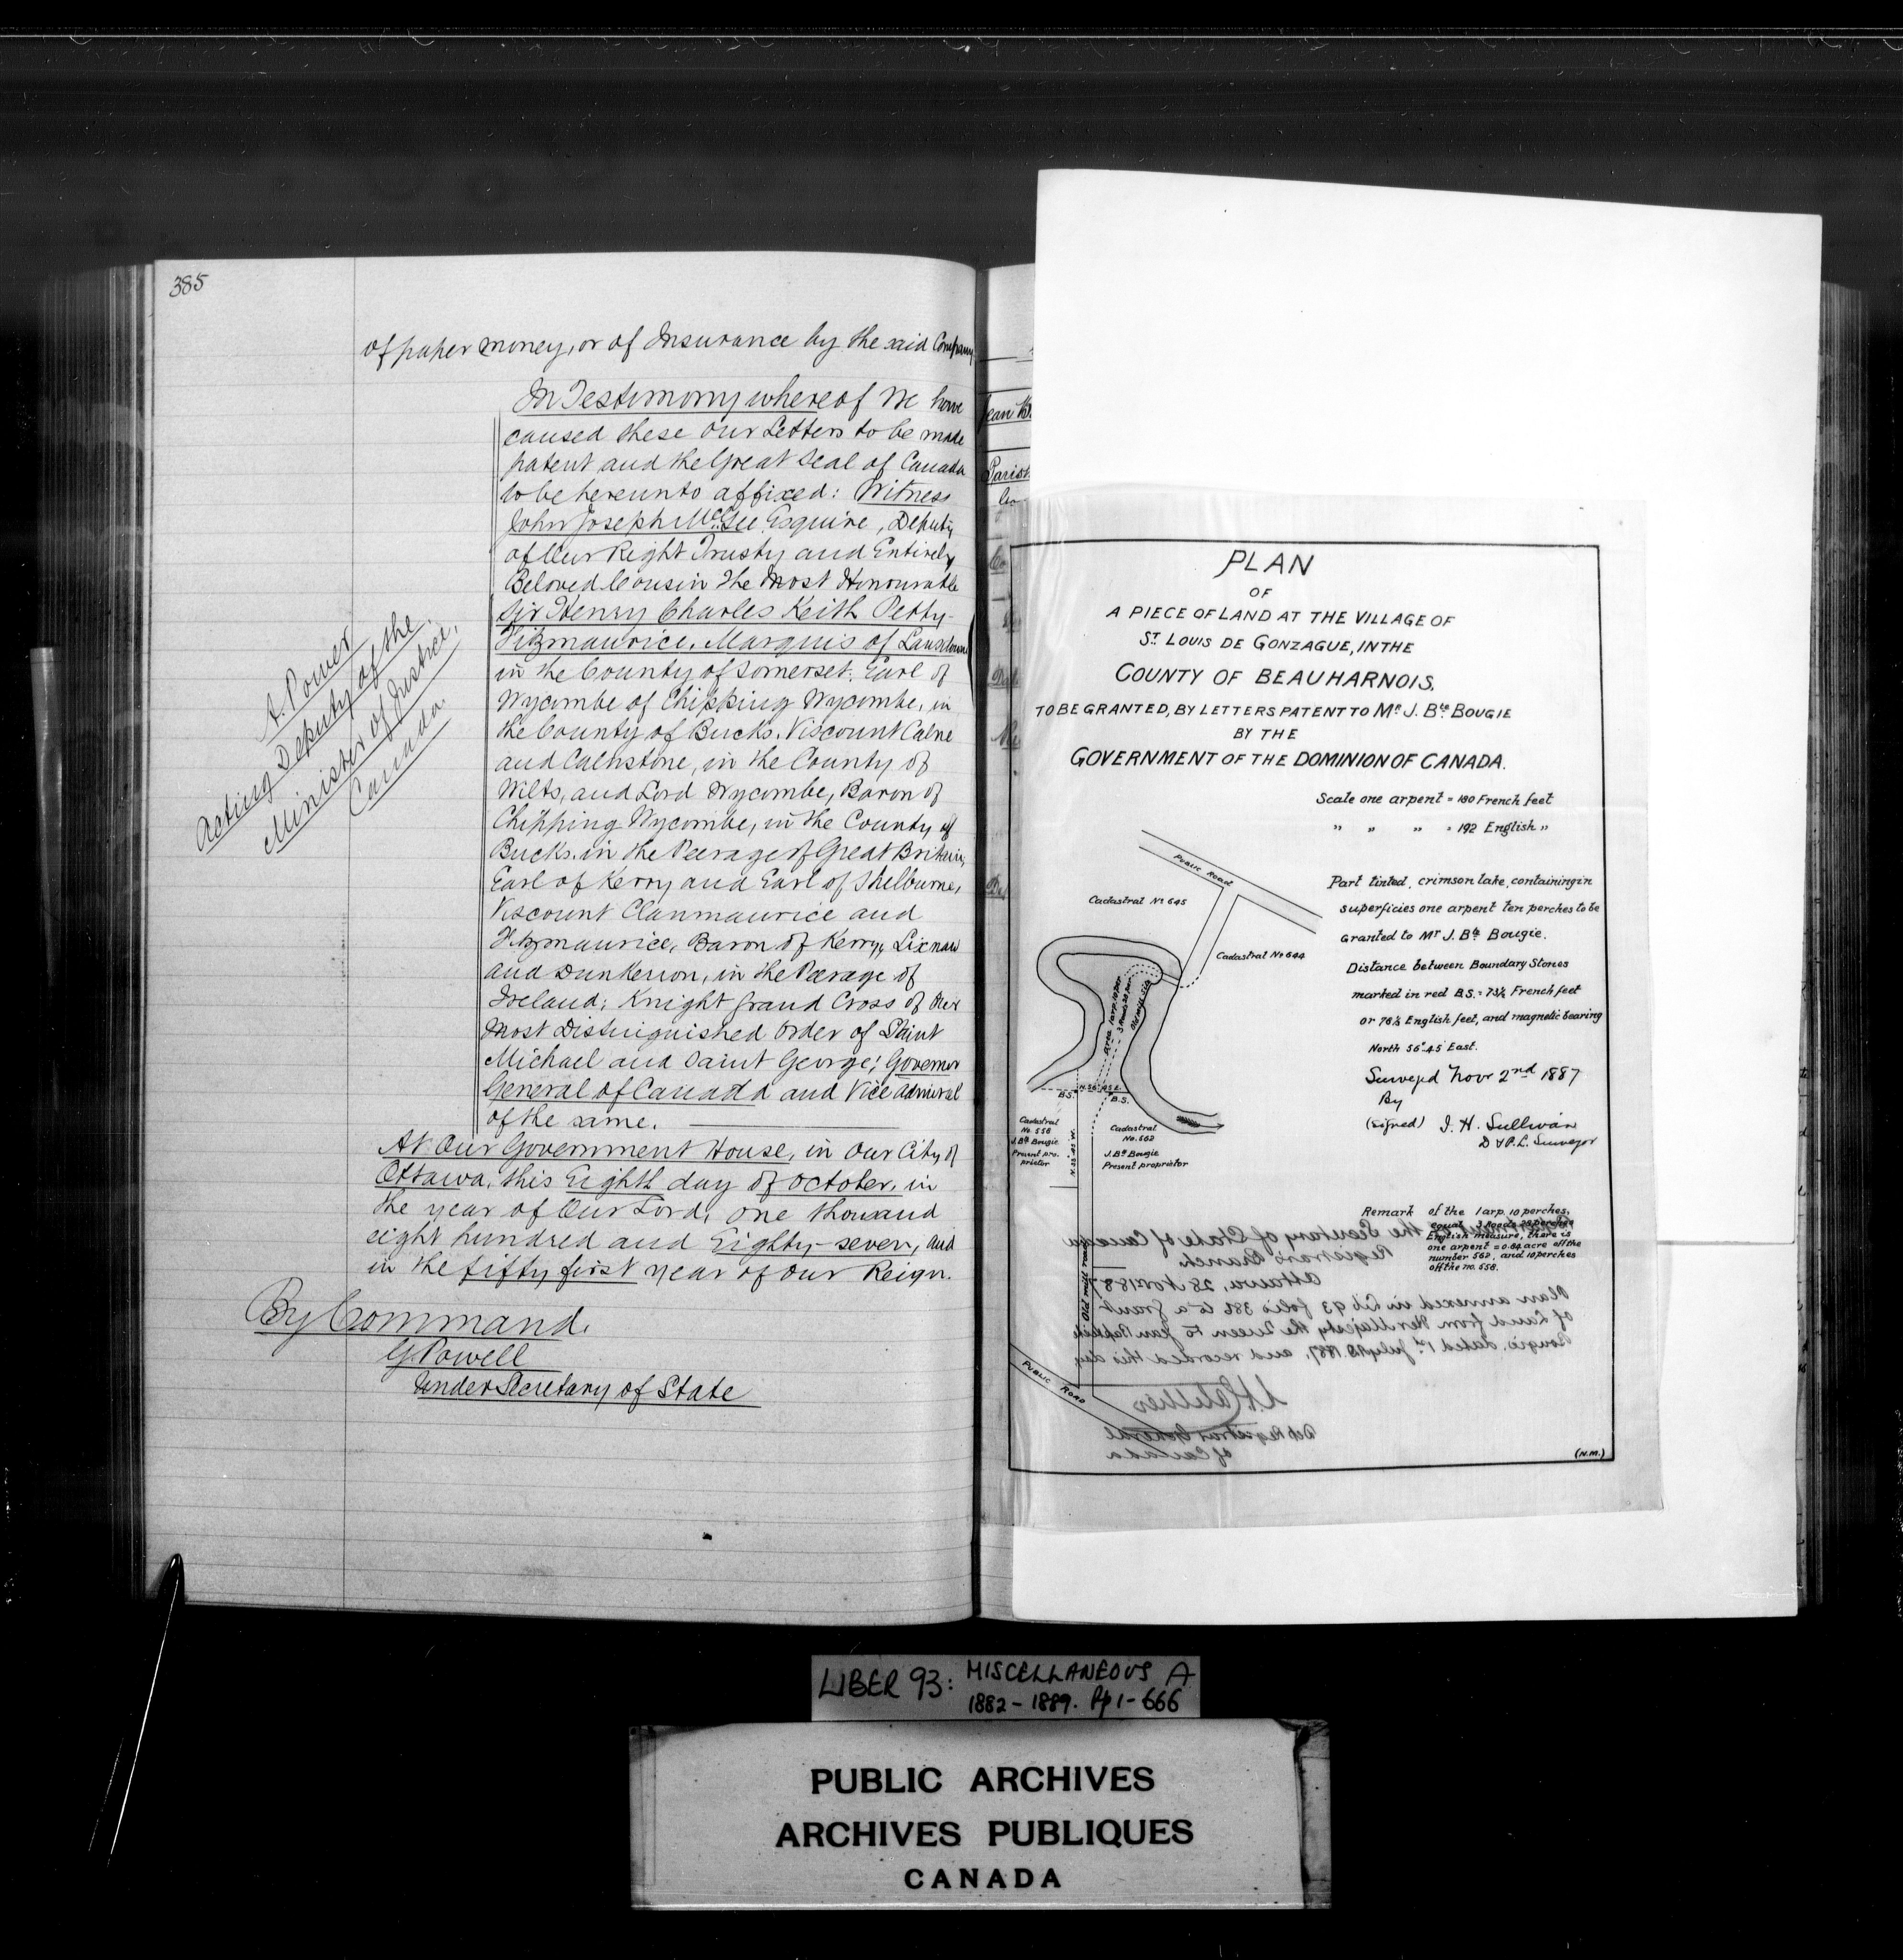 385
of paper money, or of Insurance by the said Company
In Testimony whereof We have
caused these Our Letters to be made
patent and the Great Seal of Canada
to be hereunto affixed: Witness
John Joseph McGee Esquire, Deputy
of Our Right Trusty and Entirely
Beloved Cousin The Most Honourable
Sir Henry Charles Keith Petty-
Fitzmaurice, Marquis of Lansdowne
in the County of Somerset, Earl of
Wycombe of Chipping Wycombe, in
the County of Bucks, Viscount Calne
and Calnstone, in the County of
Wilts, and Lord Wycombe, Baron of
Chipping Wycombe, in the County of
Bucks, in the Peerage of Great Britain;
Earl of Kerry and Earl of Shelburne,
Viscount Clanmaurice and
Fitzmaurice, Baron of Kerry, Lixnaw
and Dunkerron, in the Peerage of
Ireland; Knight Grand Cross of Our
Most Distinguished Order of Saint
Michael and Saint George; Governor
General of Canada and Vice Admiral
of the same.
At Our Government House, in Our City of
Ottawa, this Eighth day of October, in
the year of Our Lord, one thousand
eight hundred and Eighty-seven, and
in the fifty first year of Our Reign.
By Command.
G. Powell
Under Secretary of State
A. Power
Acting Deputy of the
Minister of Justice,
Canada.
Jean B
Parish
PLAN
OF
A PIECE OF LAND AT THE VILLAGE OF
ST. LOUIS DE GONZAGUE, IN THE
COUNTY OF BEAUHARNOIS.
TO BE GRANTED, BY LETTERS PATENT TO MR J. BTE BOUGIE
BY THE
GOVERNMENT OF THE DOMINION OF CANADA.
Scale one arpent = 180 French feet
" " " = 192 English "
Part tinted, crimson lake, containing in
superficies one arpent ten perches to be
granted to Mr J. Bte Bougie.
Distance between Boundary Stones
marked in red B.S. = 73½ French feet
or 78⅓ English feet, and magnetic bearing
North 56°.45' East.
Surveyed Novr 2nd 1887
By
(signed) J. H. Sullivan
D & P. L. Surveyor
Public Road
Cadastral No 645
Cadastral No 644
Area 1 arp. 10 per.
3 Roods 20 per.
Old mill site
N. 56° 45' E.
B.S.
B.S.
Cadastral
No. 558
J. Bte Bougie
Present pro-
prietor
Cadastral
No. 562
J. Bte Bougie
Present proprietor
Old mill road
Public Road
Remark of the 1 arp. 10 perches,
equal 3 Roods 20 perches
English measure, there is
one arpent = 0.84 acre off the
number 562, and 10 perches
off the no. 558.
(N.M.)
Department of the Secretary of State of Canada
Registrar's Branch
Ottawa, 28 Nov. 1887
Plan annexed in Lib 93 folio 386 to a grant
of Land from Her Majesty the Queen to Jean Baptiste
Bougie, dated 1st July A.D. 1887, and recorded this day
Dep Registrar General
of Canada
LIBER 93: MISCELLANEOUS A
1882 - 1889. Pp 1 - 666
PUBLIC ARCHIVES
ARCHIVES PUBLIQUES
CANADA